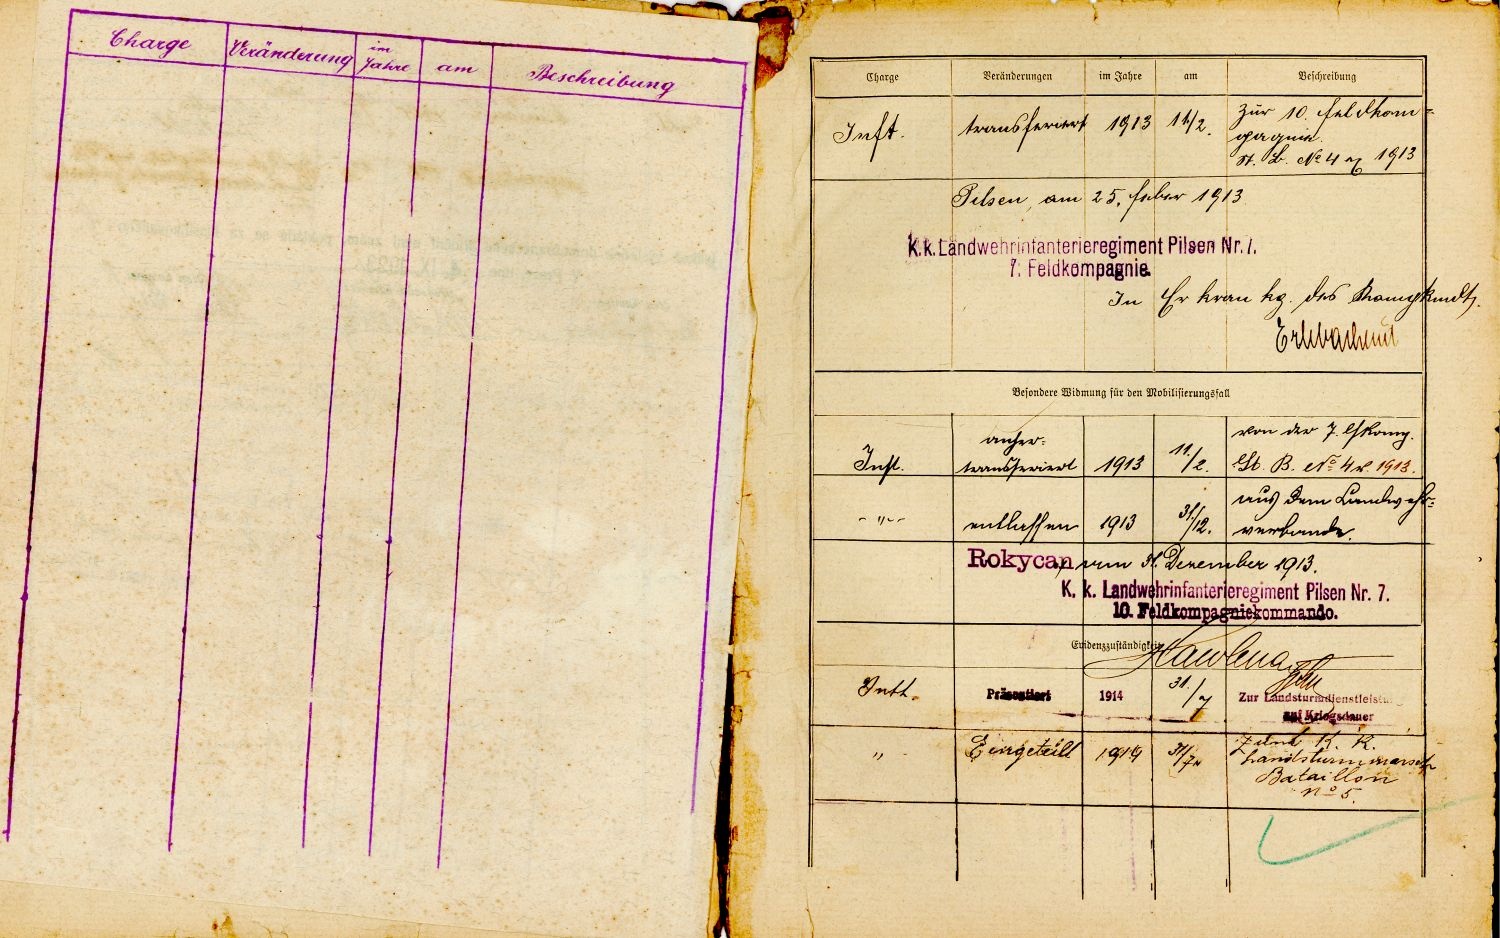 Charge Veränderung im Jahre am Beschreibung
Charge Veränderungen im Jahre am Beschreibung
Inft. transferiert 1913 11/2. Zur 10. Feldkom=
pagnie.
St. B. No 4 1913
Pilsen, am 25. feber 1913
K. k. Landwehrinfanterieregiment Pilsen Nr. 7.
7. Feldkompagnie.
In Erkrankg. des Kompkmdt.
Besondere Widmung für den Mobilisierungsfall
anher= von der 7. Fkomp.
Inft. transferiert 1913 11./2. St. B. No 4 1913.
aus dem Landwehr=
-"- entlassen 1913 31./12. verbande.
Rokycan, am 31. Dezember 1913.
K. k. Landwehrinfanterieregiment Pilsen Nr. 7.
10. Feldkompagniekommando.
Evidenzzuständigkeit
Inft. Präsentiert 1914 31./7 Zur Landsturmdienstleistung
auf Kriegsdauer
" Eingeteilt 1914 31/7. Zum K. K.
Landsturmmarsch
Bataillon
No 5.